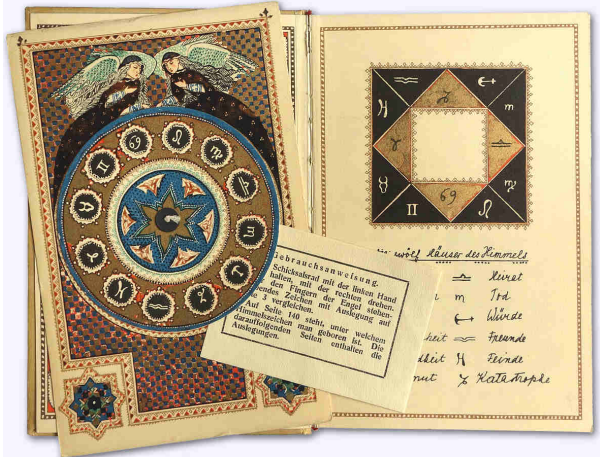 Gebrauchsanweisung.
Schicksalsrad mit der linken Hand
halten, mit der rechten drehen.
den Fingern der Engel stehen-
Zeichen mit Auslegung auf
3 vergleichen.
Auf Seite 140 steht, unter welchem
Himmelszeichen man geboren ist. Die
darauffolgenden Seiten enthalten die
Auslegungen.
Häuser des Himmels
Heirat
Tod
Würde
Freunde
Feinde
Katastrophe